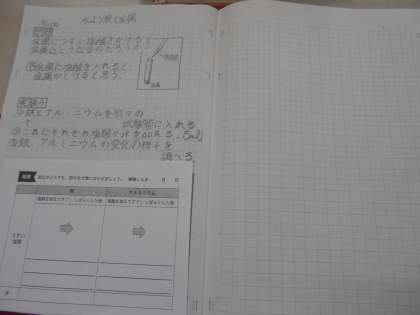 水よう液と金属
問題
金属にうすい塩酸をかけると
金属はどうなるのだろうか。
予金属に塩酸を入れると、
金属がとけると思う。
塩酸
金属
実験方
①鉄とアルミニウムを別々の
試験管に入れる
②これにそれぞれ塩酸や水を加える。
③鉄、アルミニウムの変化の様子を
調べる。
結果
月 日
鉄
アルミニウム
塩酸を加えてすぐ しばらくした後 塩酸を加えてすぐ しばらくした後
うすい
塩酸
水